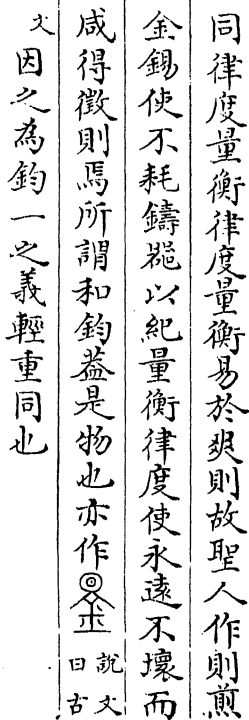 同律度量衡律度量衡易於爽則故聖人作則煎
金錫使不耗鑄器以紀量衡律度使永遠不壞而
咸得徵則焉所謂和鈞葢是物也亦作
說文
曰古
文
因之為鈞一之義輕重同也